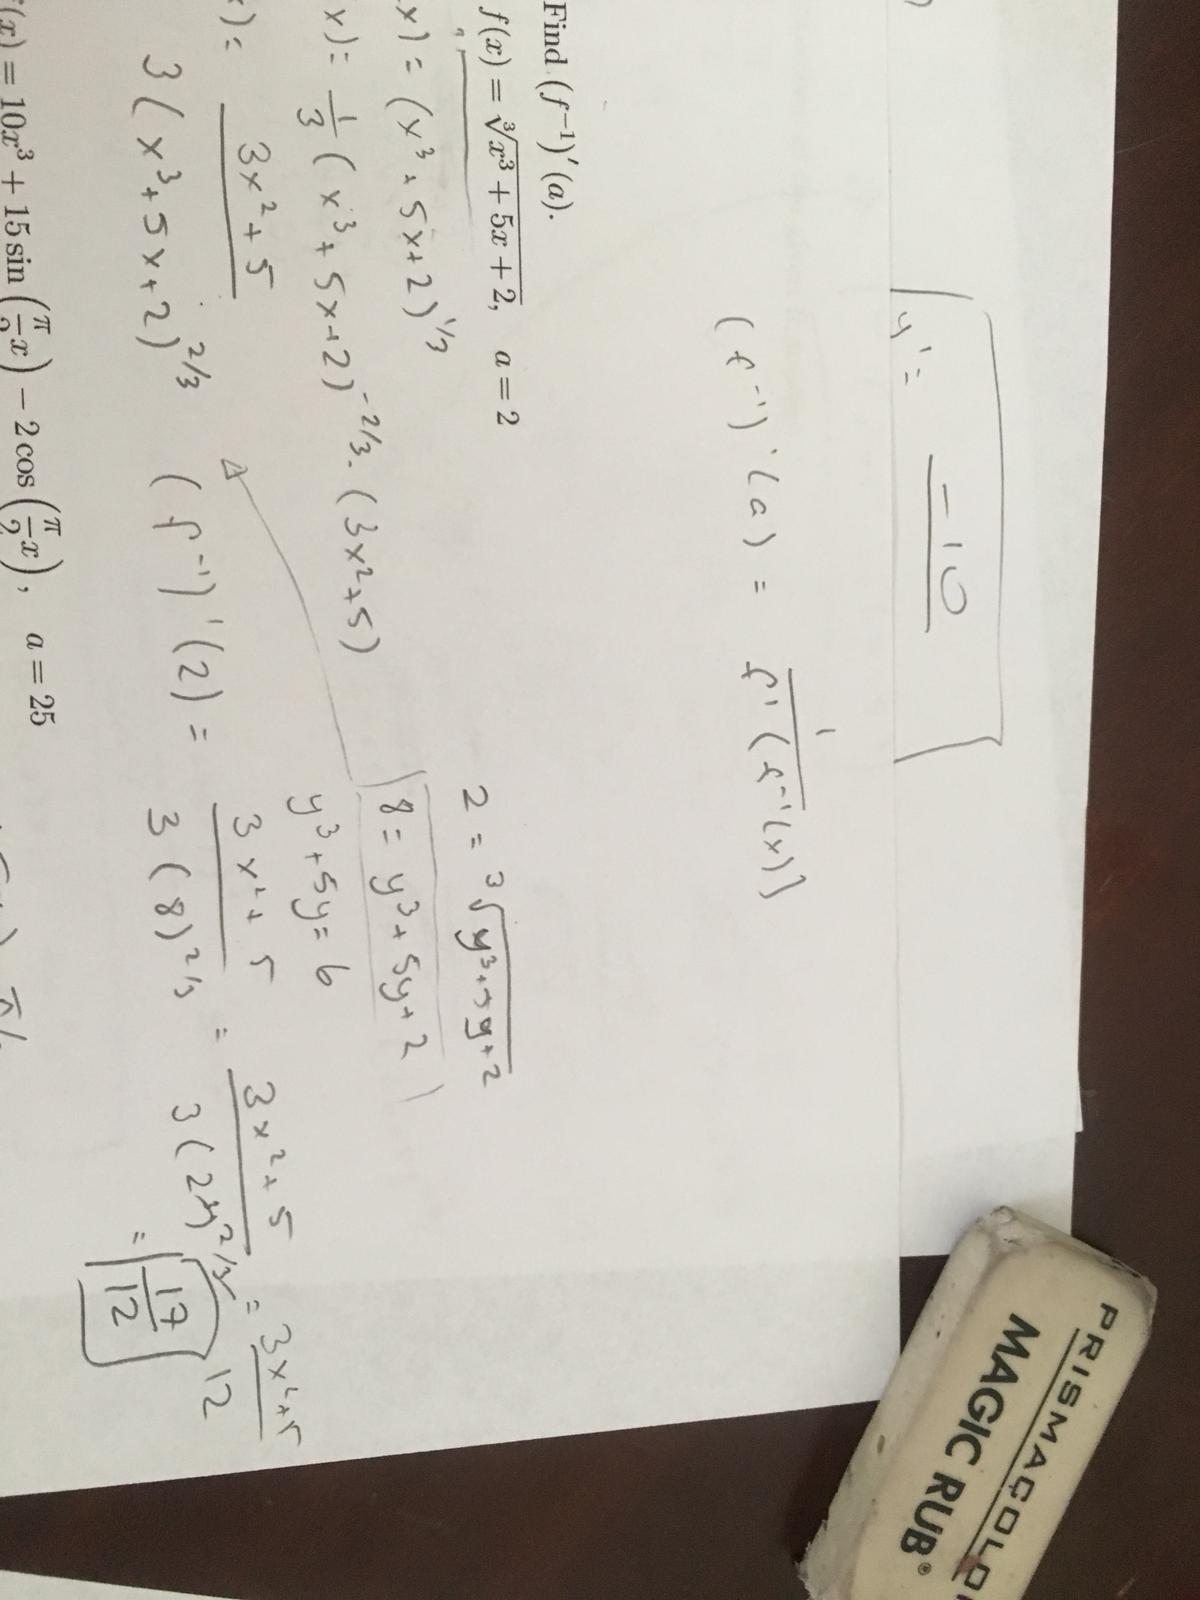 )
y' = -10
(f⁻¹)'(a) = 1 / f'(f⁻¹(x))
Find (f⁻¹)'(a).
f(x) = ∛(x³ + 5x + 2), a = 2
x) = (x³ + 5x + 2)^1/3
x) = 1/3 (x³ + 5x + 2)^-2/3 · (3x² + 5)
x) = 3x² + 5 / 3(x³ + 5x + 2)^2/3
2 = ∛(y³ + 5y + 2)
8 = y³ + 5y + 2
y³ + 5y = 6
(f⁻¹)'(2) = 3x² + 5 / 3(8)^2/3 = 3x² + 5 / 3(2³)^2/3 = 3x² + 5 / 12
= 17/12
(x) = 10x³ + 15 sin(π/2 x) − 2 cos(π/2 x), a = 25
PRISMACOLO
MAGIC RUB®